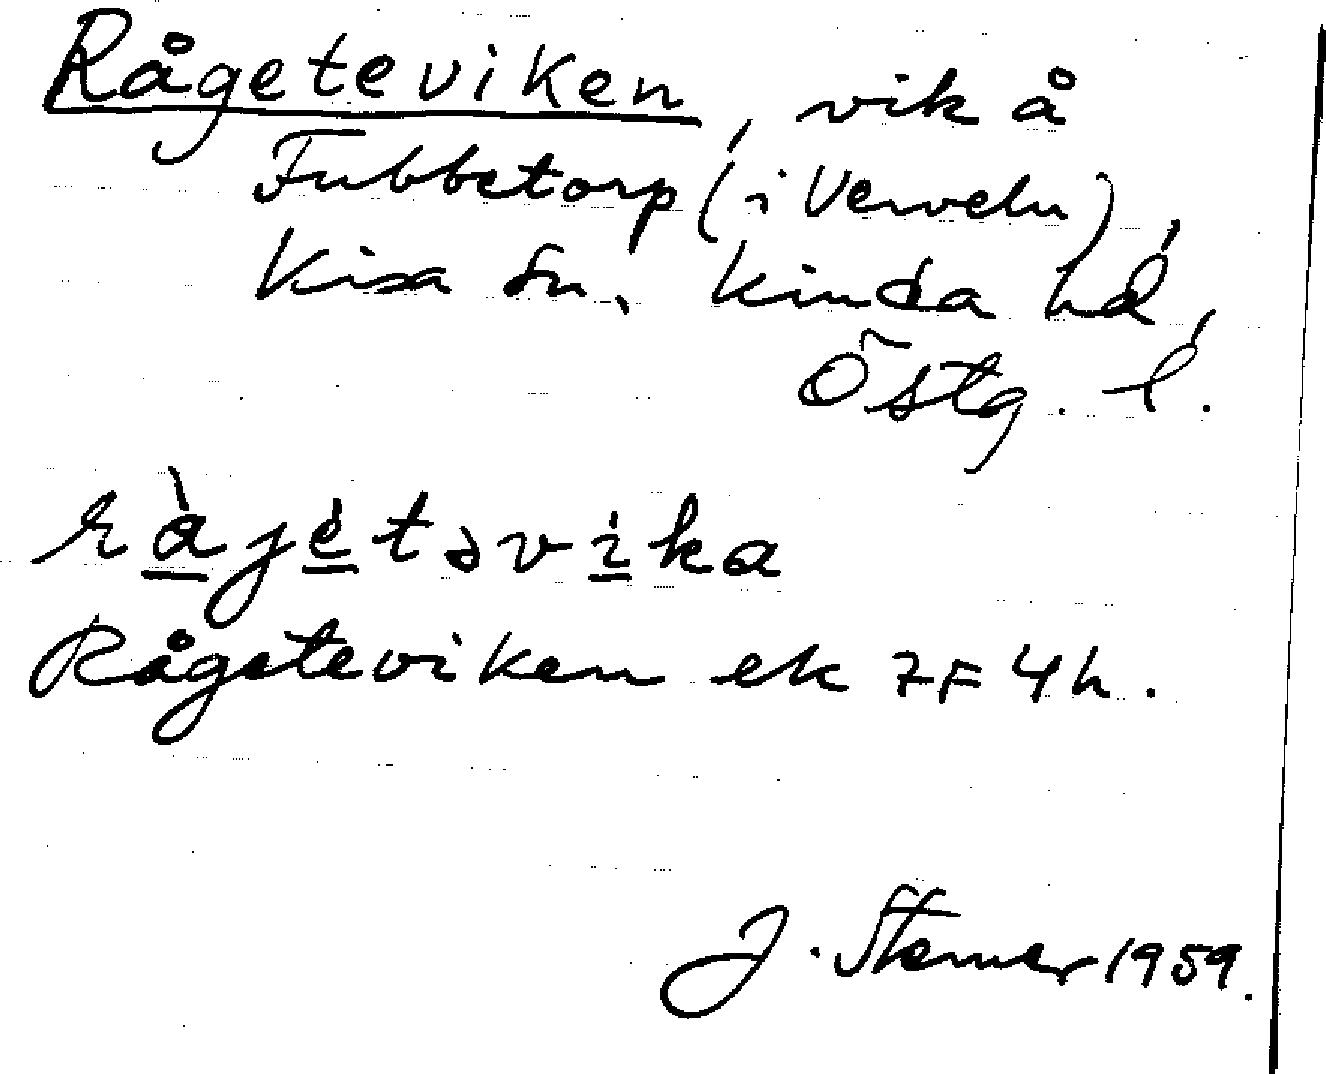 Rågeteviken, vik å
Fubbetorp (i Verveln),
Kisa sn, Kinda hd,
Östg. l.
ràjètəvika
Rågeteviken ek 7F 4h.
J. Sterner 1959.